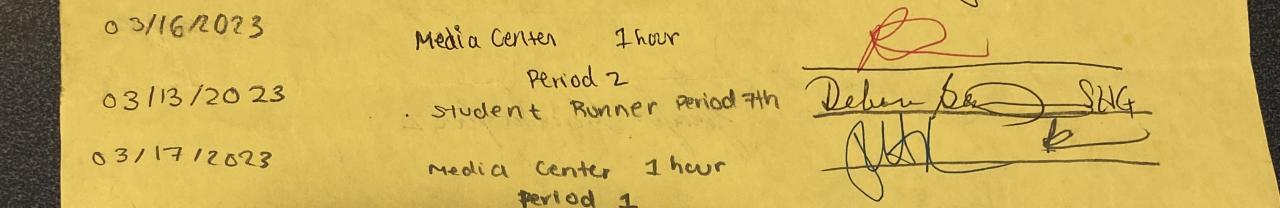 03/16/2023 Media Center 1 hour
Period 2
03/13/2023 . student Runner Period 7th
03/17/2023 Media Center 1 hour
Period 1